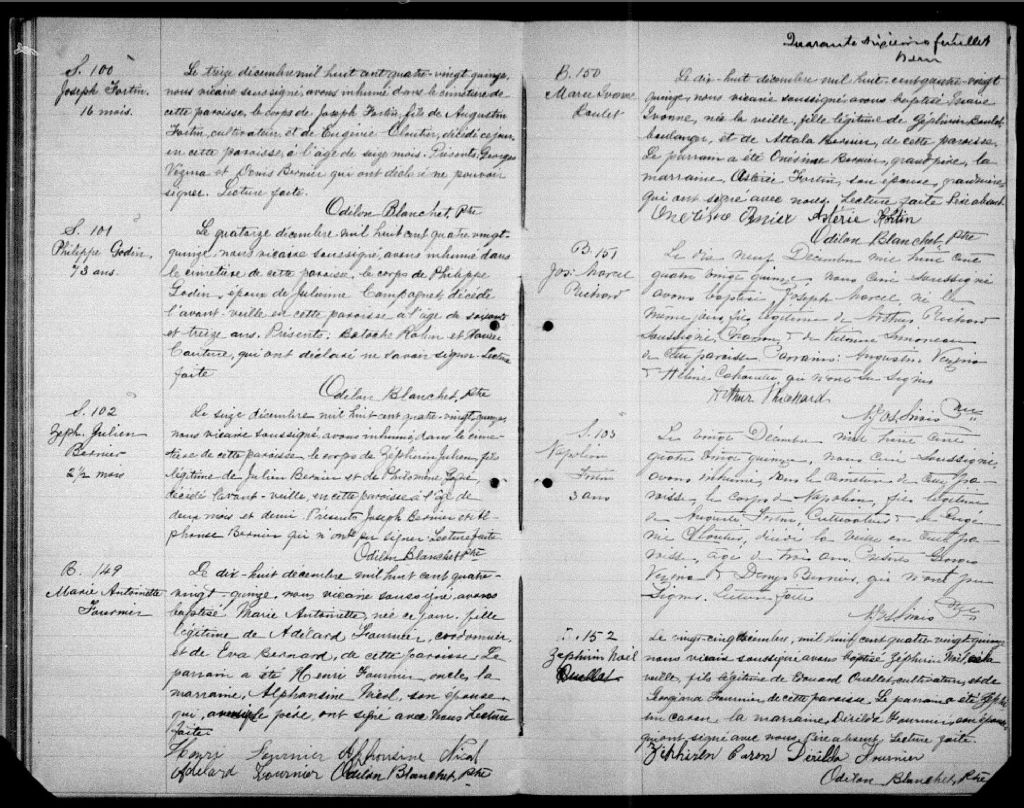 S. 100
Joseph Fortin.
16 mois.
Le treize décembre mil huit cent quatre-vingt quinze,
nous vicaire soussigné, avons inhumé dans le cimetière de
cette paroisse, le corps de Joseph Fortin, fils de Augustin
Fortin, cultivateur et de Eugénie Cloutier, décédé ce jour
en cette paroisse, à l'âge de seize mois. Présents: Georges
Vezina et Denis Bernier qui ont déclaré ne pouvoir
signer. Lecture faite.
Odilon Blanchet, Ptre
S. 101
Philippe Godin,
73 ans.
Le quatorze décembre mil huit cent quatre vingt-
quinze, nous vicaire soussigné, avons inhumé dans
le cimetière de cette paroisse, le corps de Philippe
Godin, époux de Julienne Campagnat décédé
l'avant-veille en cette paroisse à l'âge de soixante
et treize ans. Présents: et
Couture, qui ont déclaré ne savoir signer. Lecture
faite
Odilon Blanchet, Ptre
S. 102
Zeph. Julien
Bernier
2½ mois
Le seize décembre mil huit cent quatre-vingt quinze,
nous vicaire soussigné, avons inhumé, dans le cime
tière de cette paroisse, le corps de Zéphirin Julien, fils
légitime de Julien Bernier et de Philomène
décédé l'avant-veille, en cette paroisse à l'âge de
deux mois et demi. Présents Joseph Bernier et Al-
phonse Bernier qui n'ont pu signer Lecture faite
Odilon Blanchet, Ptre
B. 149
Marie Antoinette
Fournier
Le dix-huit décembre mil huit cent quatre-
vingt-quinze, nous vicaire soussigné, avons
baptisé Marie Antoinette, née ce jour, fille
légitime de Adélard Fournier, cordonnier,
et de Eva Bernard, de cette paroisse. Le
parrain a été Henri Fournier, oncle, la
marraine, Alphonsine Nicol, son épouse
qui, le père, ont signé avec nous Lecture
faite
Henri Fournier Alphonsine Nicol
Adelard Fournier Odilon Blanchet, Ptre
Quarante sixième feuillet
B. 150
Marie Ivonne
Paulet
Le dix-huit décembre mil huit-cent quatre-vingt
quinze, nous vicaire soussigné avons baptisé Marie
Ivonne, née la veille, fille légitime de Zéphirin
boulanger, et de Attala Bernier, de cette paroisse.
Le parrain a été Onésime Bernier, grand père, la
marraine, Astérie Fortin, son épouse, grand'mère
qui ont signé avec nous. Lecture faite Père absent
Astérie Fortin
Odilon Blanchet, Ptre
B. 151
Jos: Marcel
Richard
Le dix neuf Décembre mil huit cent
quatre vingt quinze, nous Curé soussigné
avons baptisé Joseph Marcel, né le
même jour, fils légitime de Arthur Richard
soussigné, & de Simoneau
de cette paroisse Parrains: Augustin Vezina
& Hélène qui n'ont su signer
Arthur Richard
S. 103
Napoléon
Fortin
3 ans
Le vingt Décembre mil huit cent
quatre vingt quinze, nous Curé soussigné,
avons inhumé, dans le cimetière de cette pa-
roisse, le corps de Napoléon, fils légitime
de Auguste Fortin, Cultivateur & de Eugé-
nie Cloutier, décédé la veille en cette pa-
roisse, âgé de trois ans. Présents Georges
Vezina & Denys Bernier, qui n'ont pu
signer. Lecture faite
152
Zéphirin Noël
Ouellet
Le vingt-cinq décembre, mil huit cent quatre-vingt quinze,
nous vicaire soussigné avons baptisé Zéphirin Noël, né la
veille, fils légitime de Edouard Ouellet, cultivateur, et de
Georgiana Fournier de cette paroisse. Le parrain a été Zéphi-
rin Caron, la marraine, Dérilda Fournier, son épouse
qui ont signé avec nous. Père absent. Lecture faite.
Zéphirin Caron Dérilda Fournier
Odilon Blanchet, Ptre